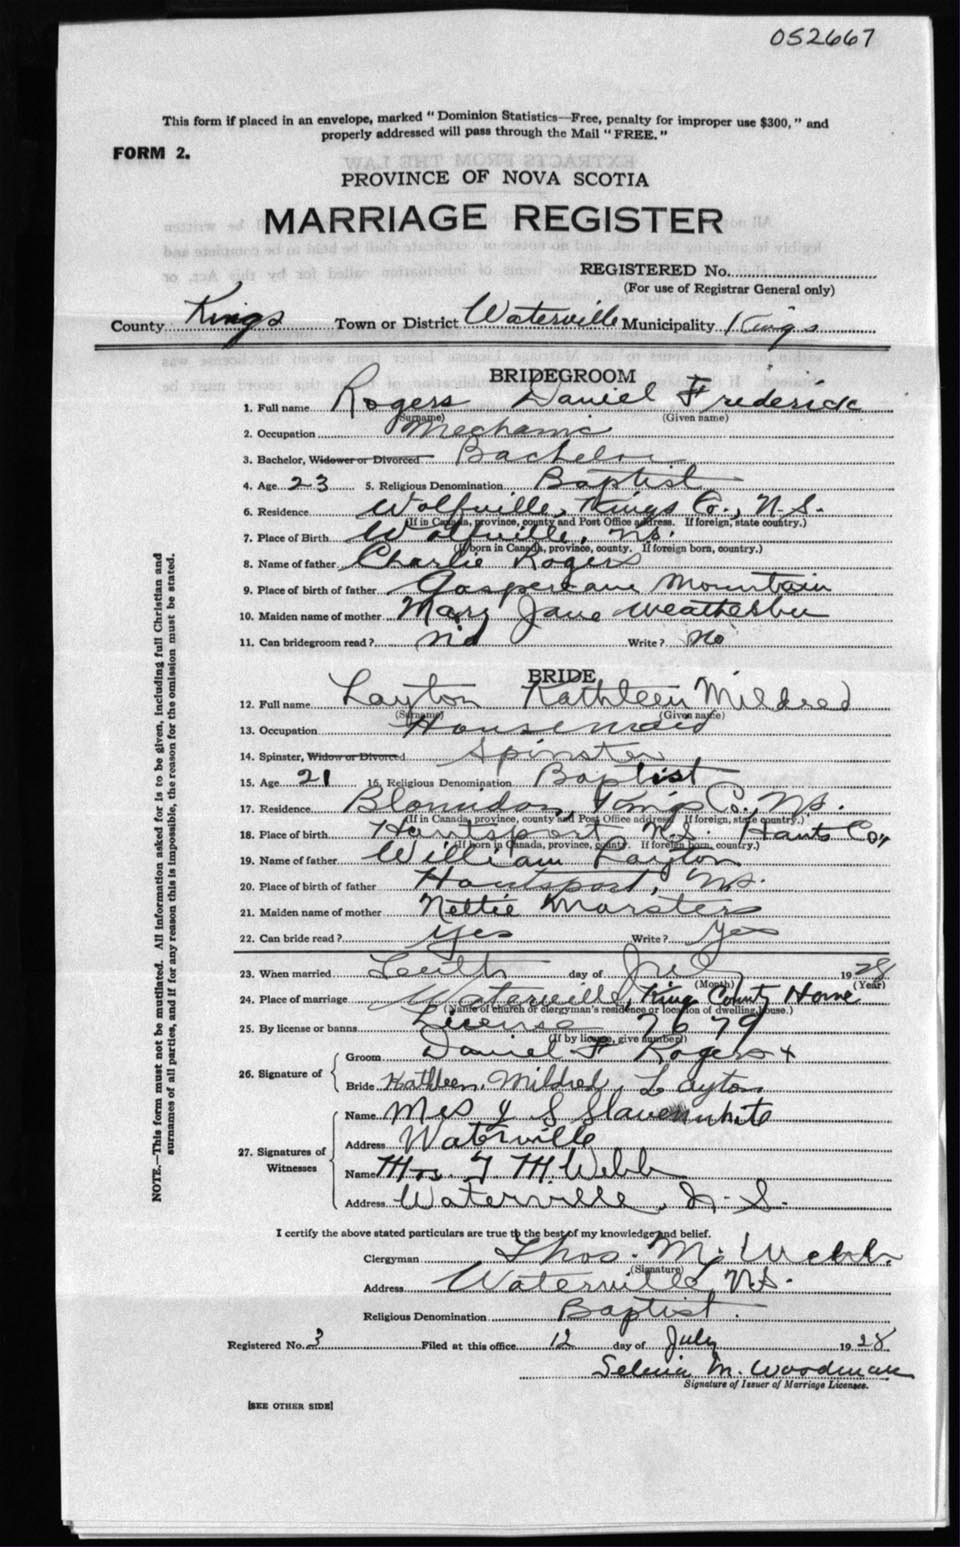 052667
This form if placed in an envelope, marked "Dominion Statistics—Free, penalty for improper use $300," and
properly addressed will pass through the Mail "FREE."
FORM 2.
PROVINCE OF NOVA SCOTIA
MARRIAGE REGISTER
REGISTERED No.
(For use of Registrar General only)
County Kings Town or District Waterville Municipality Kings
BRIDEGROOM
1. Full name Rogers Daniel Frederick
(Surname) (Given name)
2. Occupation Mechanic
3. Bachelor, Widower or Divorced Bachelor
4. Age 23 5. Religious Denomination Baptist
6. Residence Wolfville, Kings Co., N.S.
(If in Canada, province, county and Post Office address. If foreign, state country.)
7. Place of Birth Wolfville, N.S.
(If born in Canada, province, county. If foreign born, country.)
8. Name of father Charlie Rogers
9. Place of birth of father Gaspereau Mountain
10. Maiden name of mother Mary Jane
11. Can bridegroom read? No Write? No
BRIDE
12. Full name Layton Kathleen Mildred
(Surname) (Given name)
13. Occupation Housemaid
14. Spinster, Widow or Divorced Spinster
15. Age 21 16. Religious Denomination Baptist
17. Residence Blomidon, Kings Co., N.S.
(If in Canada, province, county and Post Office address. If foreign, state country.)
18. Place of birth Hantsport N.S. Hants Co.,
(If born in Canada, province, county. If foreign born, country.)
19. Name of father William Layton
20. Place of birth of father Hantsport, N.S.
21. Maiden name of mother Nettie Marsters
22. Can bride read? Yes Write? Yes
23. When married day of July 1928
(Month) (Year)
24. Place of marriage Waterville, Kings County Home
(Name of church or clergyman's residence or location of dwelling house.)
25. By license or banns License 7679
(If by license, give number)
26. Signature of
Groom Daniel F Rogers x
Bride Kathleen Mildred Layton
27. Signatures of Witnesses
Name Mrs J S Slavenwhite
Address Waterville
Name Mrs T M Webb
Address Waterville, N.S.
I certify the above stated particulars are true to the best of my knowledge and belief.
Clergyman Thos. M. Webb
(Signature)
Address Waterville, N.S.
Religious Denomination Baptist.
Registered No. 3 Filed at this office 12 day of July 1928
Selina M. Woodman
Signature of Issuer of Marriage Licenses.
[SEE OTHER SIDE]
NOTE.—This form must not be mutilated. All information asked for is to be given, including full Christian and
surnames of all parties, and if for any reason this is impossible, the reason for the omission must be stated.